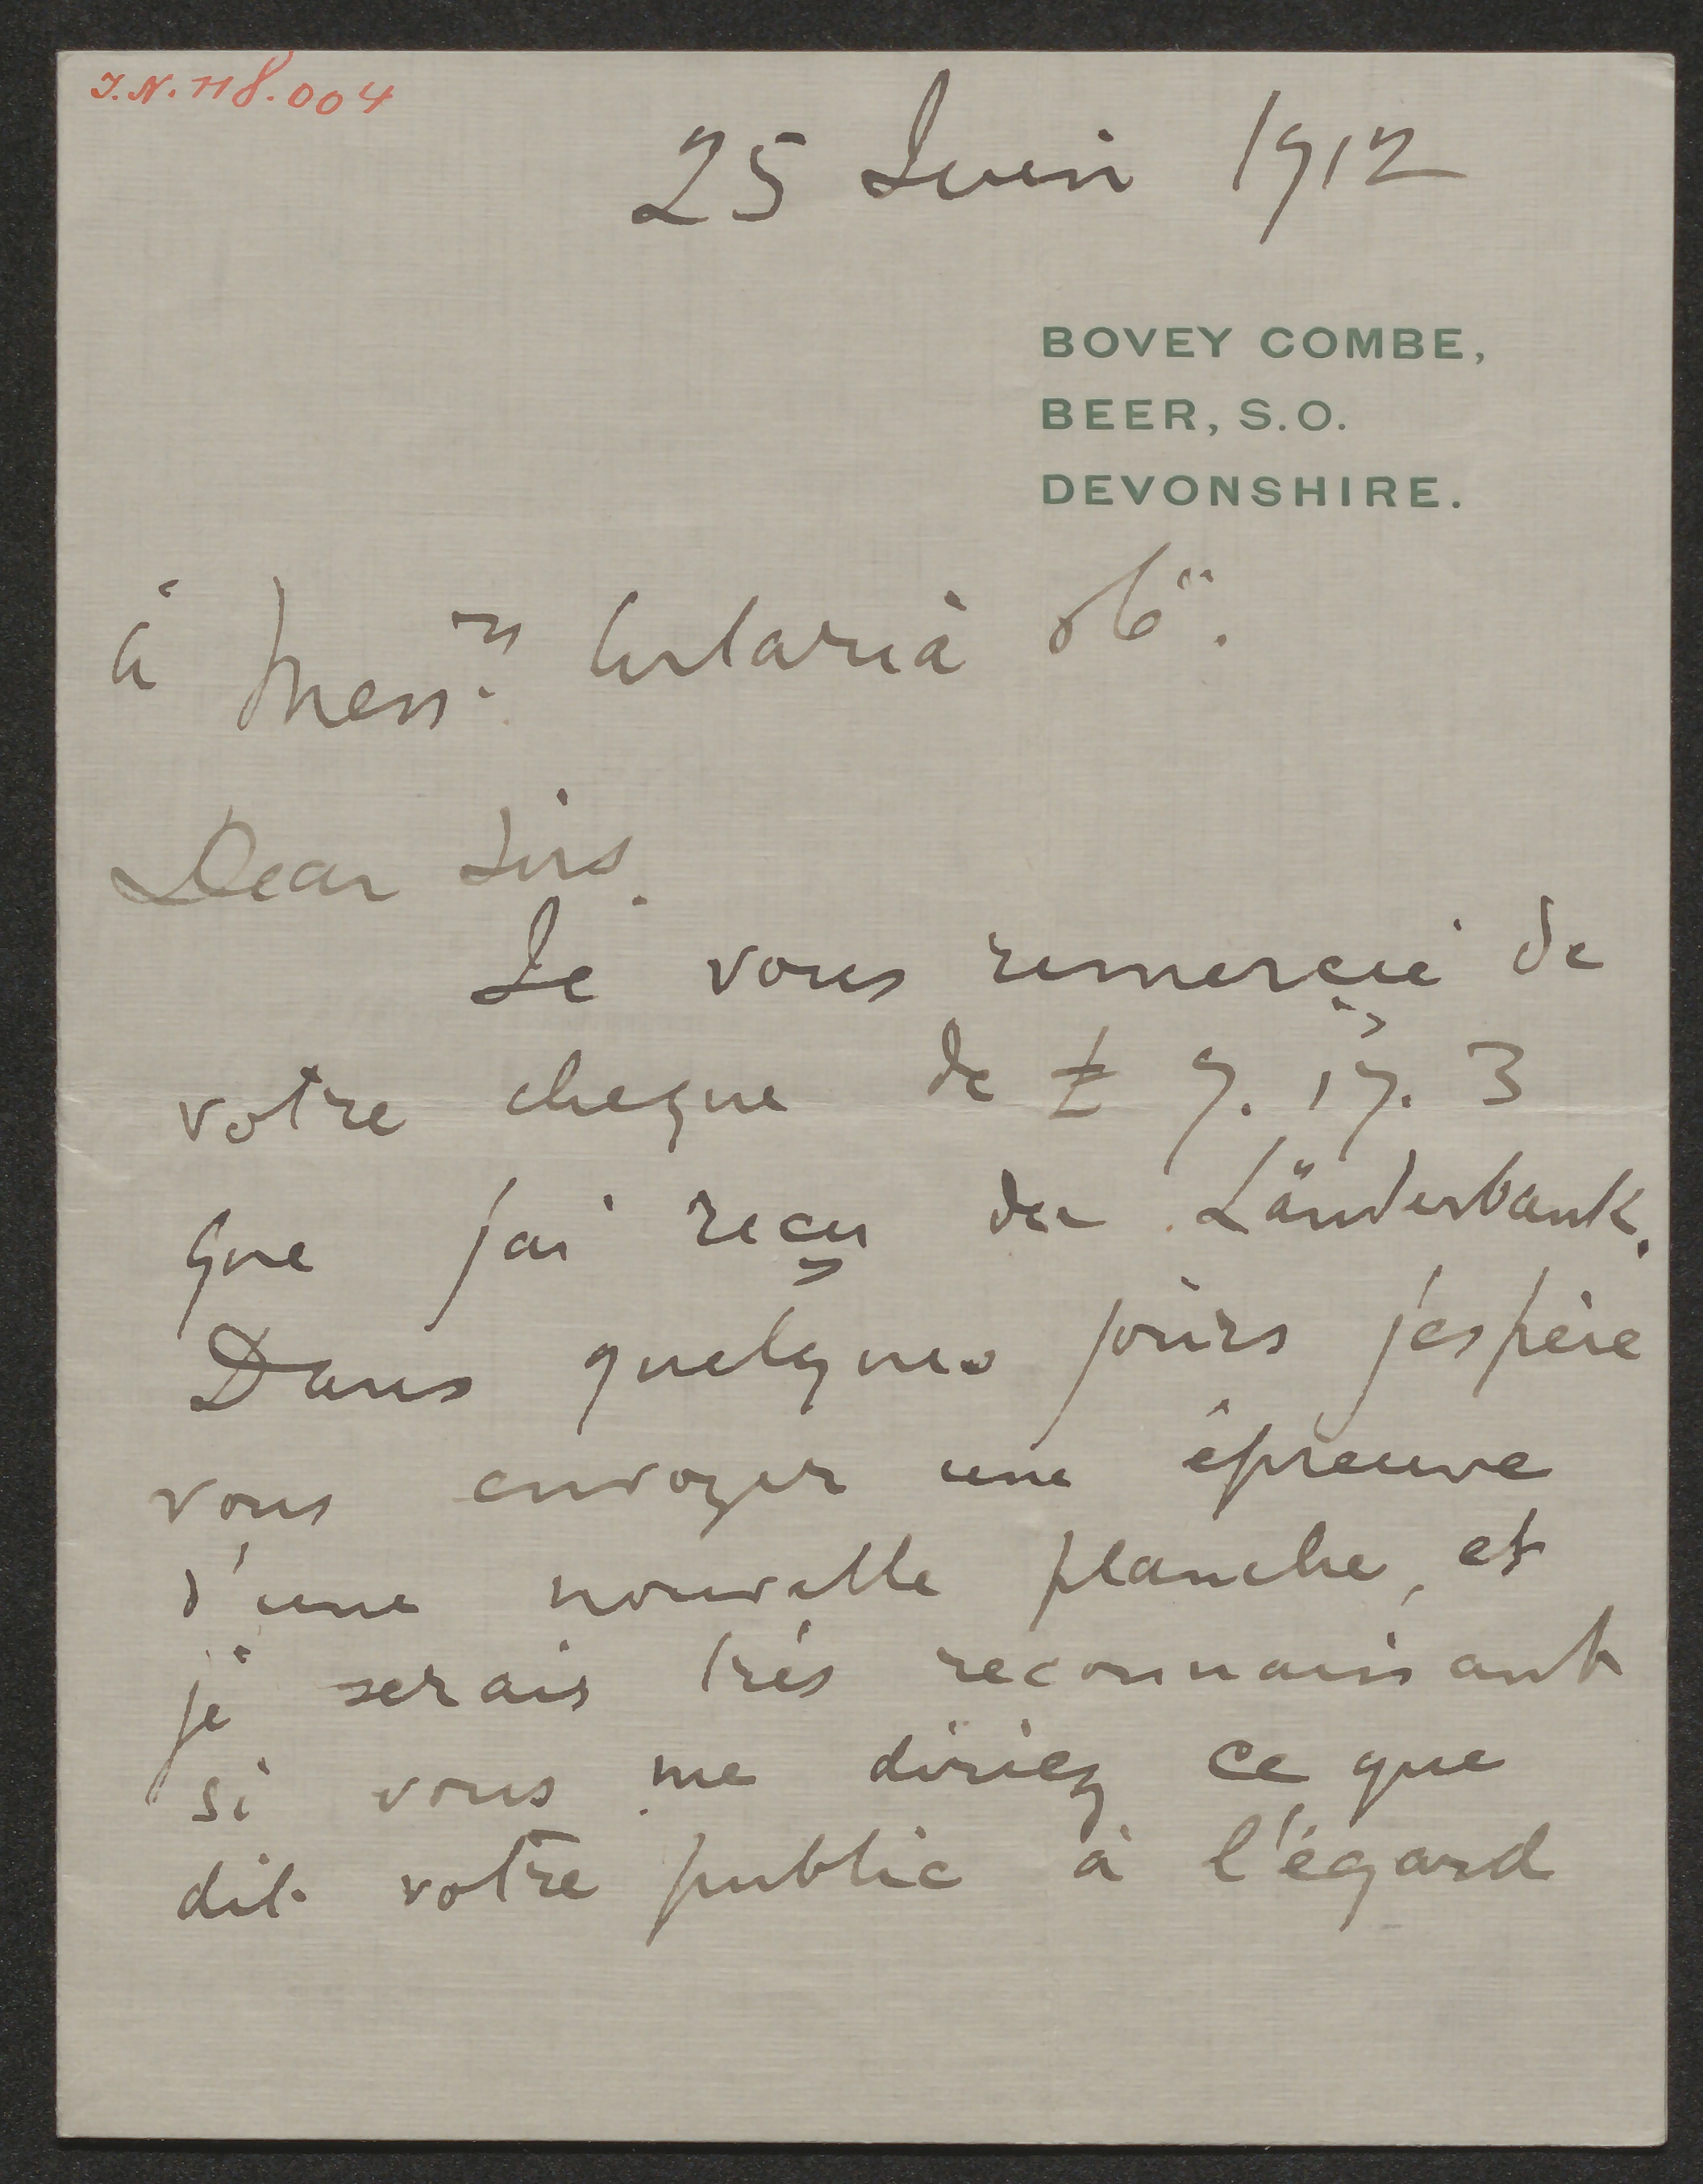 I.N. 118.004
25 Juin 1912
BOVEY COMBE,
BEER, S.O.
DEVONSHIRE.
à Messrs Artaria & Co.
Dear Sirs.
Je vous remerçie de
votre cheque de £ 9. 17. 3
que j'ai reçu der Länderbank.
Dans quelques jours j'espère
vous envoyer une épreuve
d'une nouvelle planche, et
je serais très reconnaissant
si vous me diriez ce que
dit votre public à l'égard